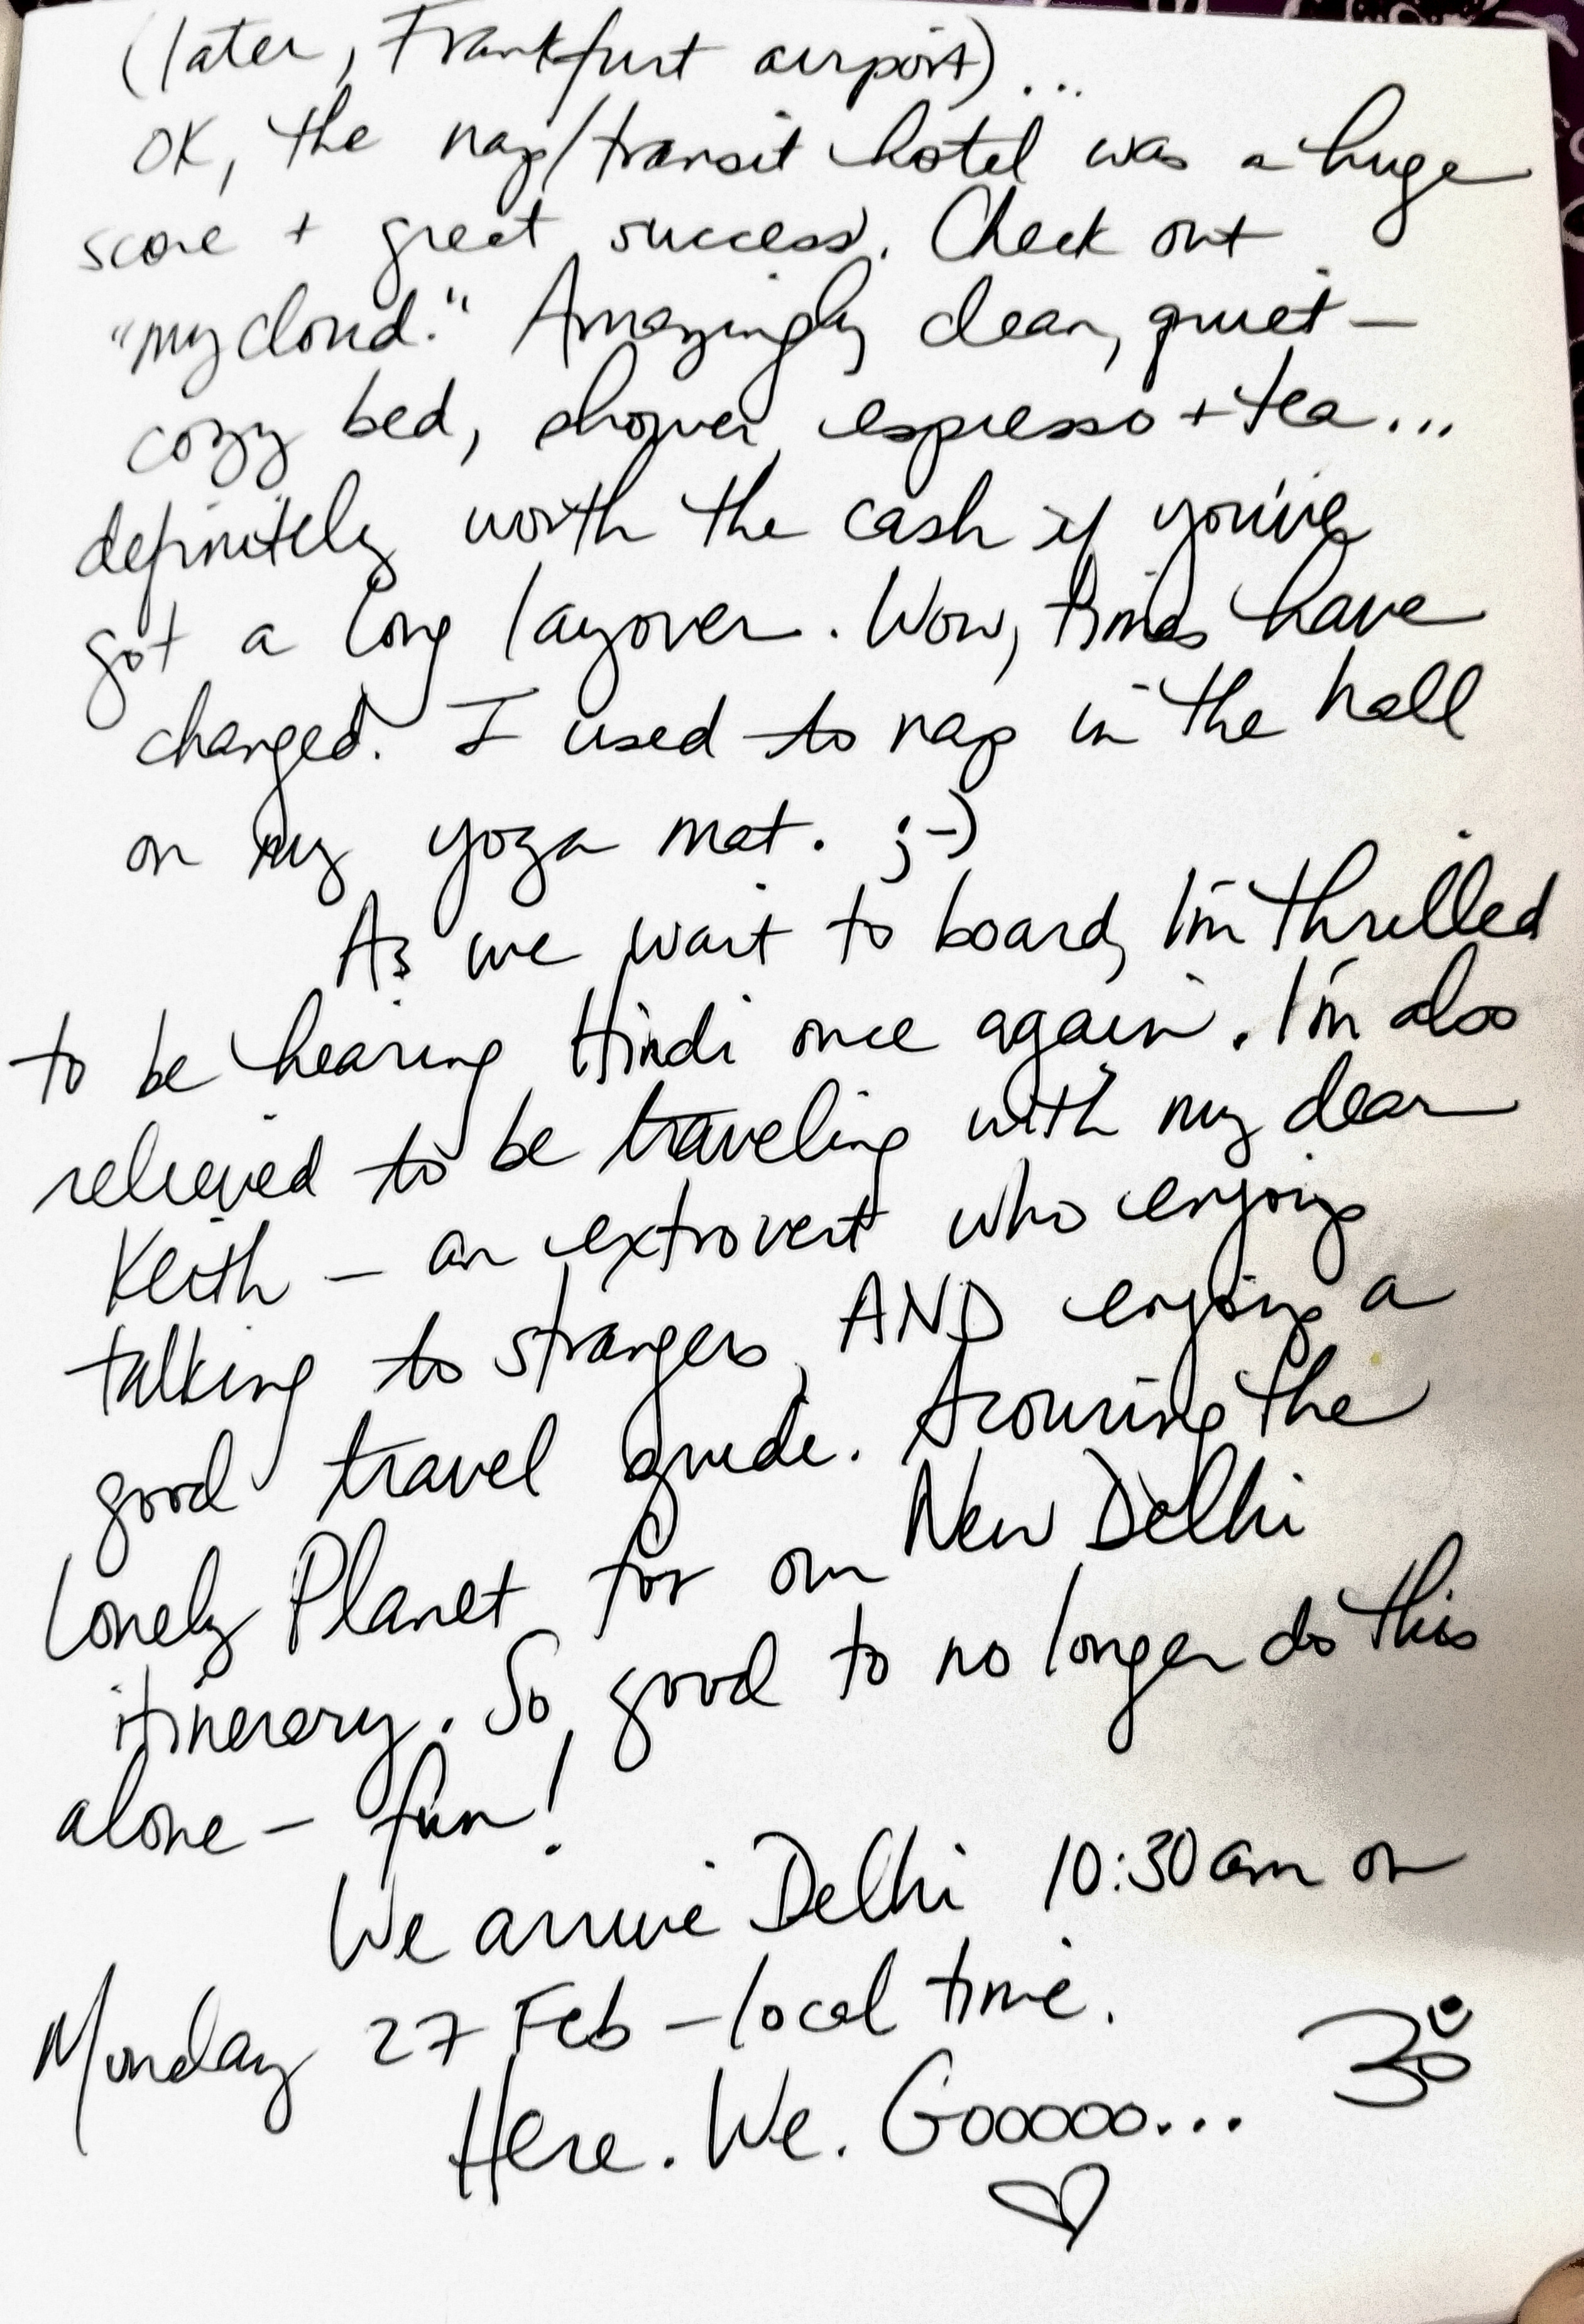 (later, Frankfurt airport)...
OK, the nap/transit hotel was a huge
score + great success. Check out
"my cloud." Amazingly clean, quiet —
cozy bed, shower, espresso + tea...
definitely worth the cash if you've
got a long layover. Wow, times have
changed. I used to nap in the hall
on my yoga mat. ;-)
As we wait to board, I'm thrilled
to be hearing Hindi once again. I'm also
relieved to be traveling with my dear
Keith — an extrovert who enjoys
talking to strangers, AND enjoys a
good travel guide. Scouring the
Lonely Planet for our New Delhi
itinerary. So good to no longer do this
alone — fun!
We arrive Delhi 10:30am on
Monday 27 Feb — local time.
ॐ
Here. We. Gooooo...